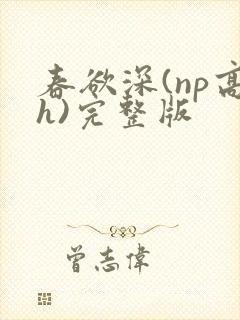 春欲深(np高
h)完整版
曾志偉